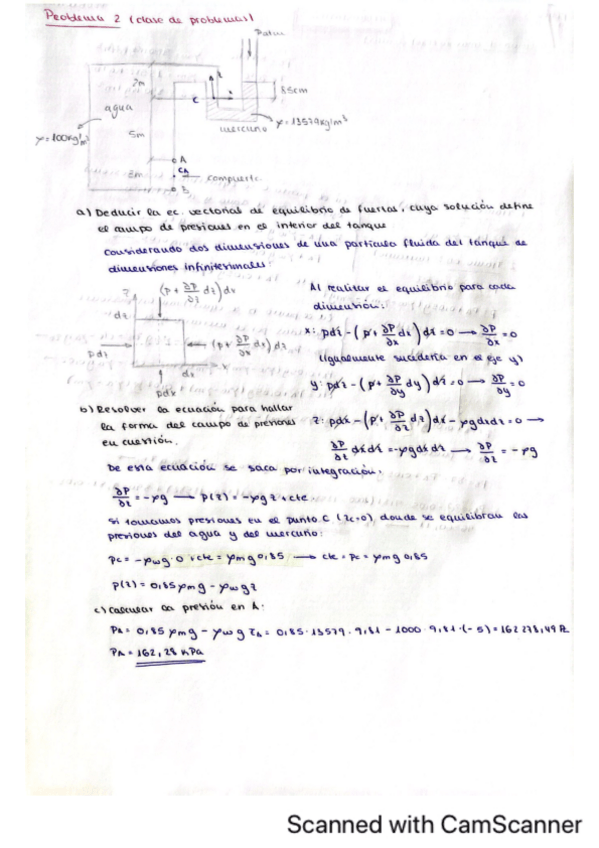 Problema 2 (clase de problemas)
Patm
2m
85cm
agua
C
mercurio
ρ=13579kg/m³
ρ=100kg/m³
5m
A
CA
compuerta
3m
B
a) Deducir la ec. vectorial de equilibrio de fuerzas, cuya solución define
el campo de presiones en el interior del tanque
Considerando dos dimensiones de una partícula fluida del tanque de
dimensiones infinitesimales:
z (p + ∂P/∂z dz) dx
dz
pdz
(p + ∂P/∂x dx) dz
dx
x
pdx
Al realizar el equilibrio para cada
dimensión:
x: pdz - (p + ∂P/∂x dx) dz = 0 → ∂P/∂x = 0
(igualmente sucedería en el eje y)
y: pdz - (p + ∂P/∂y dy) dz = 0 → ∂P/∂y = 0
b) Resolver la ecuación para hallar
la forma del campo de presiones
en cuestión.
z: pdx - (p + ∂P/∂z dz) dx - ρgdxdz = 0 →
∂P/∂z dxdz = -ρgdxdz → ∂P/∂z = -ρg
De esta ecuación se saca por integración:
∂P/∂z = -ρg → p(z) = -ρgz + cte
Si tomamos presiones en el punto C (zc=0), donde se equilibran las
presiones del agua y del mercurio:
Pc = -ρwg·0 + cte = ρmg0,85 → cte = Pc = ρmg0,85
p(z) = 0,85ρmg - ρwgz
c) Calcular la presión en A:
PA = 0,85ρmg - ρwgzA = 0,85·13579·9,81 - 1000·9,81·(-5) = 162278,49Pa
PA = 162,28 kPa
Scanned with CamScanner